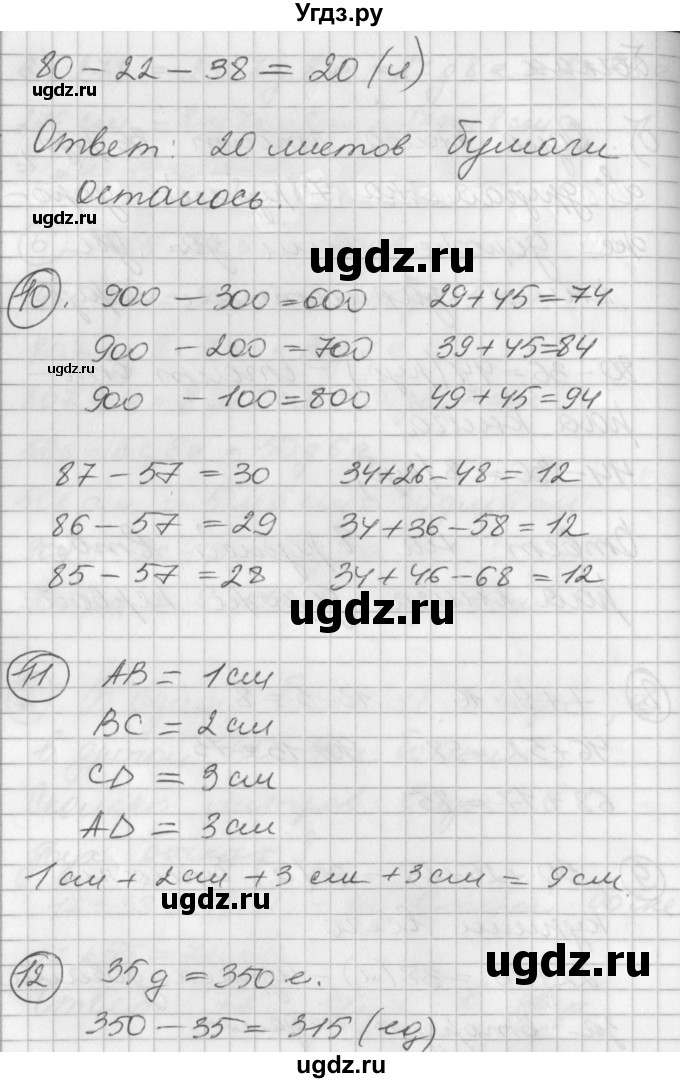 Угдз.ру
80 - 22 - 38 = 20 (л)
ugdz.ru
Ответ: 20 листов бумаги
осталось.
ugdz.ru
ugdz.ru
10. 900 - 300 = 600 29 + 45 = 74
900 - 200 = 700 39 + 45 = 84
ugdz.ru
900 - 100 = 800 49 + 45 = 94
87 - 57 = 30 34 + 26 - 48 = 12
86 - 57 = 29 34 + 36 - 58 = 12
85 - 57 = 28 34 + 46 - 68 = 12
ugdz.ru
11 AB = 1 см
BC = 2 см
CD = 3 см
AD = 3 см
1 см + 2 см + 3 см + 3 см = 9 см.
ugdz.ru
ugdz.ru
12 35 д = 350 е.
350 - 35 = 315 (ед)
ugdz.ru
ugdz.ru